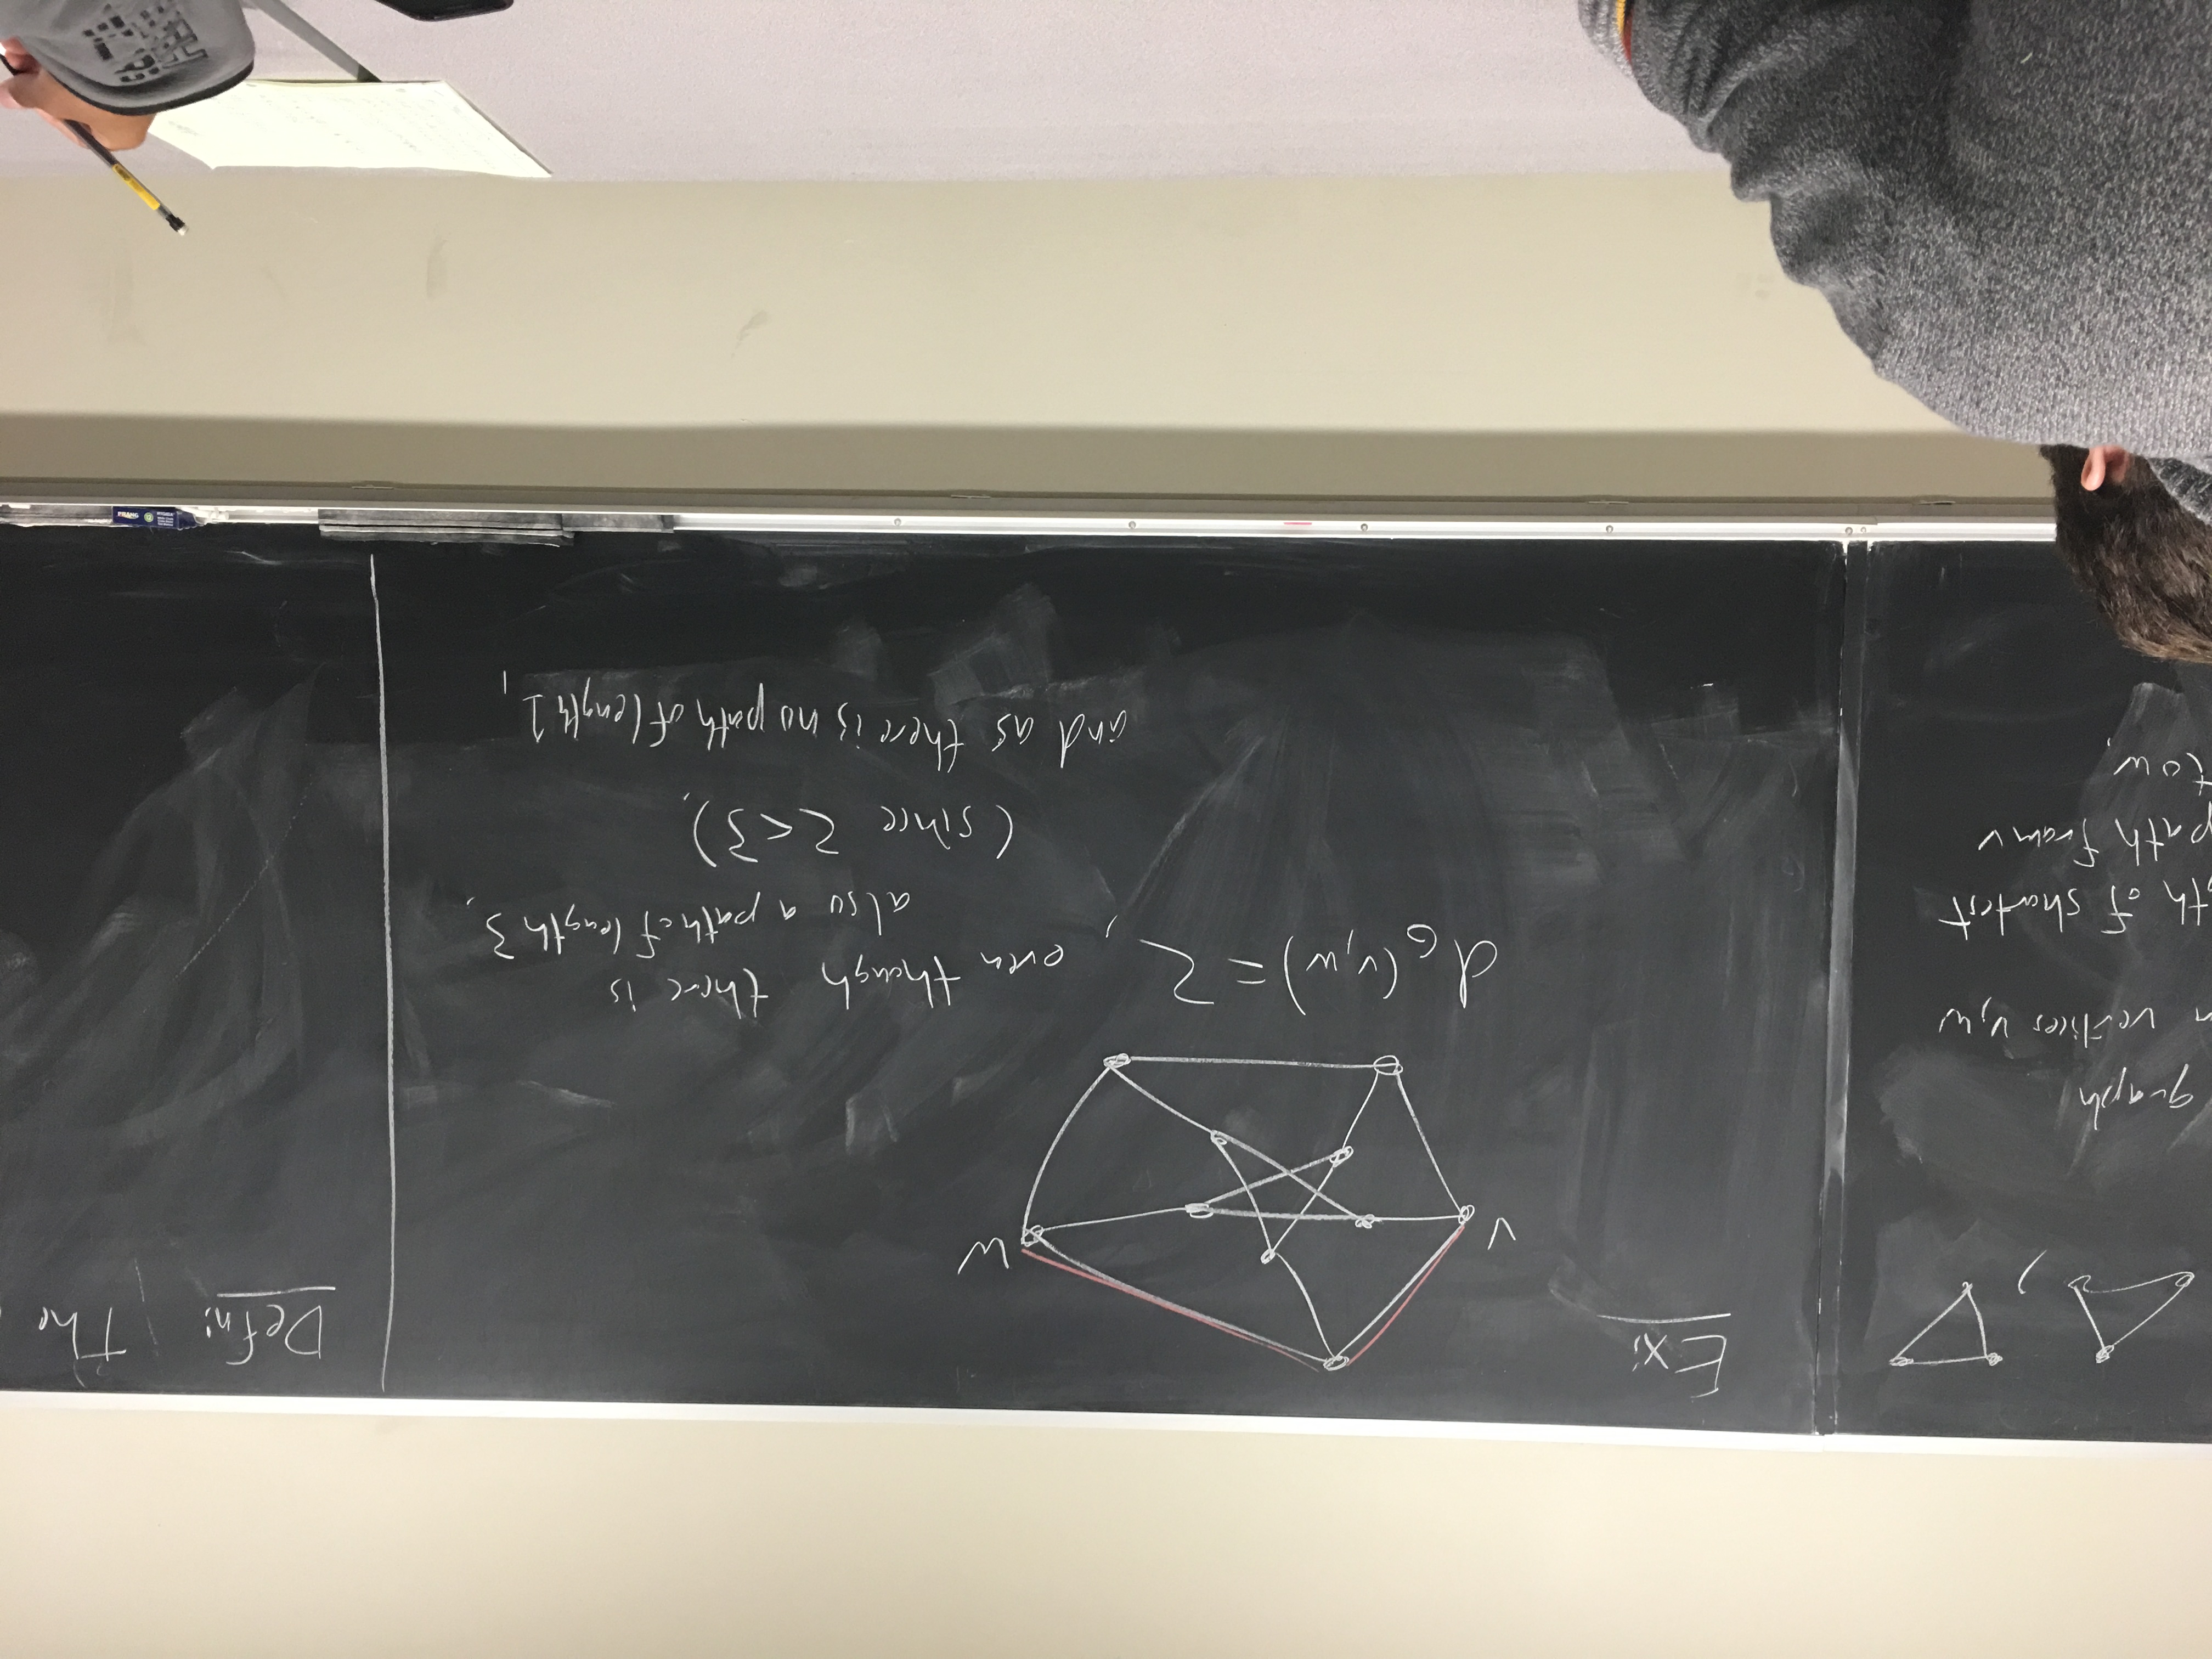 graph
vertices v,w
of shortest
path from v
to w,
Ex:
v
w
d_G(v,w)=2, even though there is
also a path of length 3,
(since 2<3),
and as there is no path of length 1,
Defn: The